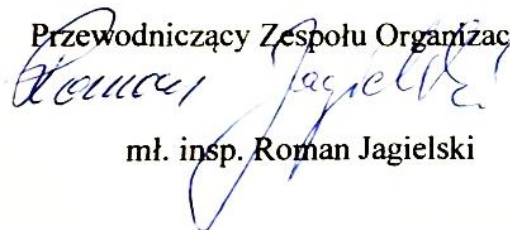 Przewodniczący Zespołu Organizac
Roman Jagielski
mł. insp. Roman Jagielski